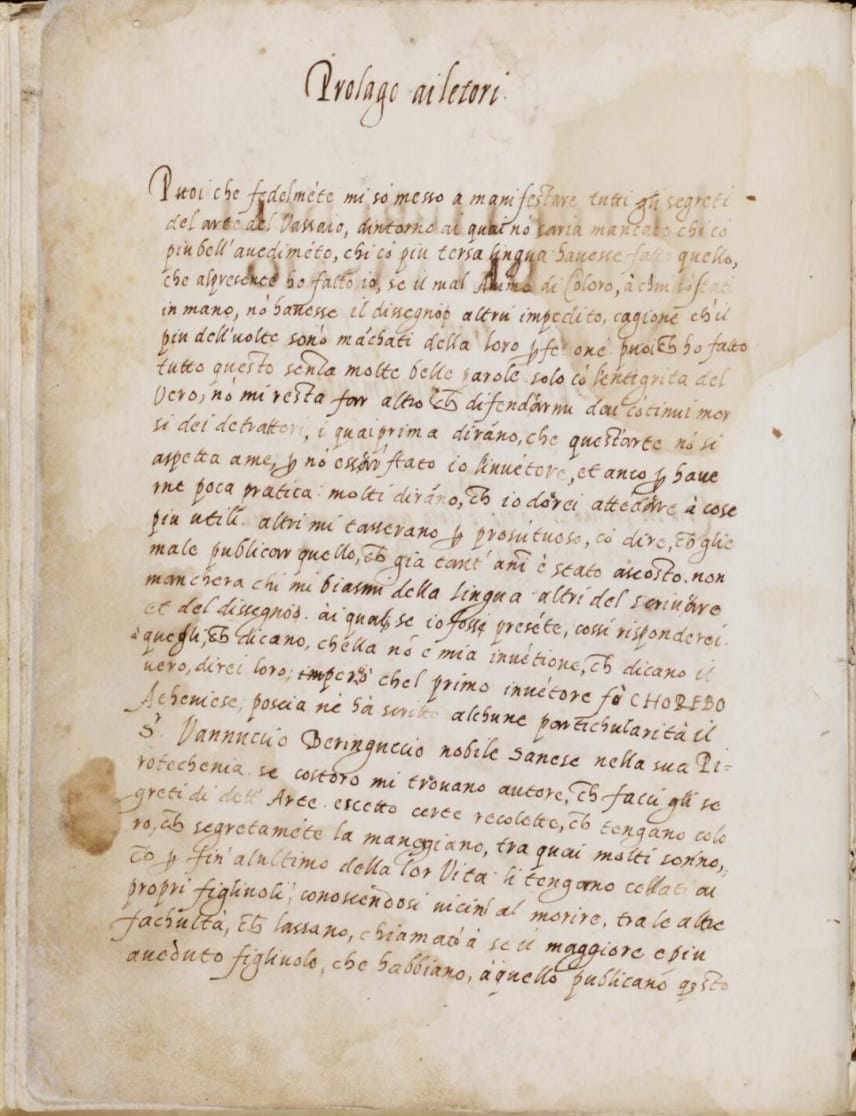 Prolago ai letori.
Puoi che fedelméte mi só messo a manifestare tutti gli segreti
del arte del Vassaio, dintorno ai quai nó saria mancato chi có
piu bell' auediméto, chi có piu tersa lingua hauesse fatto quello,
che alpresente ho fatto io, se il mal Animo di Coloro, à chi só stati
in mano, nó hauesse il dissegno altrui impedito, cagione ch'il
piu dell'uolte sonó máchati della loro ꝑfetione puoi ch ho fatto
tutto questo senza molte belle parole solo có l'entigrita del
Vero, nó mi resta far altro ch difendermi dai cótinui mor
si dei detrattori, i quai prima diráno, che quest'arte nó si
aspetta a me, ꝑ nó esser stato io l'inuétore, et anco ꝑ haue
rne poca pratica: molti diráno, ch io dourei attédere à cose
piu utili. altri mi tasserano ꝑ prosútuoso, có dire, ch glie
male publicar quello, ch già tant' anni è stato ascosto. non
manchera chi mi biasmi della lingua altri del scriuere
et del dissegno. ài quali, se io fosse preséte, cossi risponderei.
à quegli, ch dicano, chella nó e mia inuétione, ch dicano il
uero, direi loro; imperò chel primo inuétore fò CHOREBO
Atheniese; poscia nè hà scritto alchune partichularità il
S. Vannuccio Beringuccio nobile Sanese nella sua Pi=
rotechenia. se costoro mi trouano autore, ch facci gli se
greti di dell' Arte. escetto certe recolette, ch tengano colo
ro, ch segretaméte la maneggiano, tra quai molti sonno,
ch ꝑ fin' alultimo della lor Vita li tengano cellati ai
propri figliuoli; conoscendosi uicini al morire, tra le altre
fachultà, ch lassano, chiamato à se il maggiore e piu
aueduto figliuolo, che habbiano, à quello publicano qsto